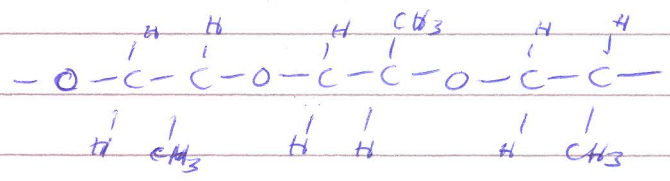 H H H CH3 H H
– O – C – C – O – C – C – O – C – C –
H CH3 H H H CH3